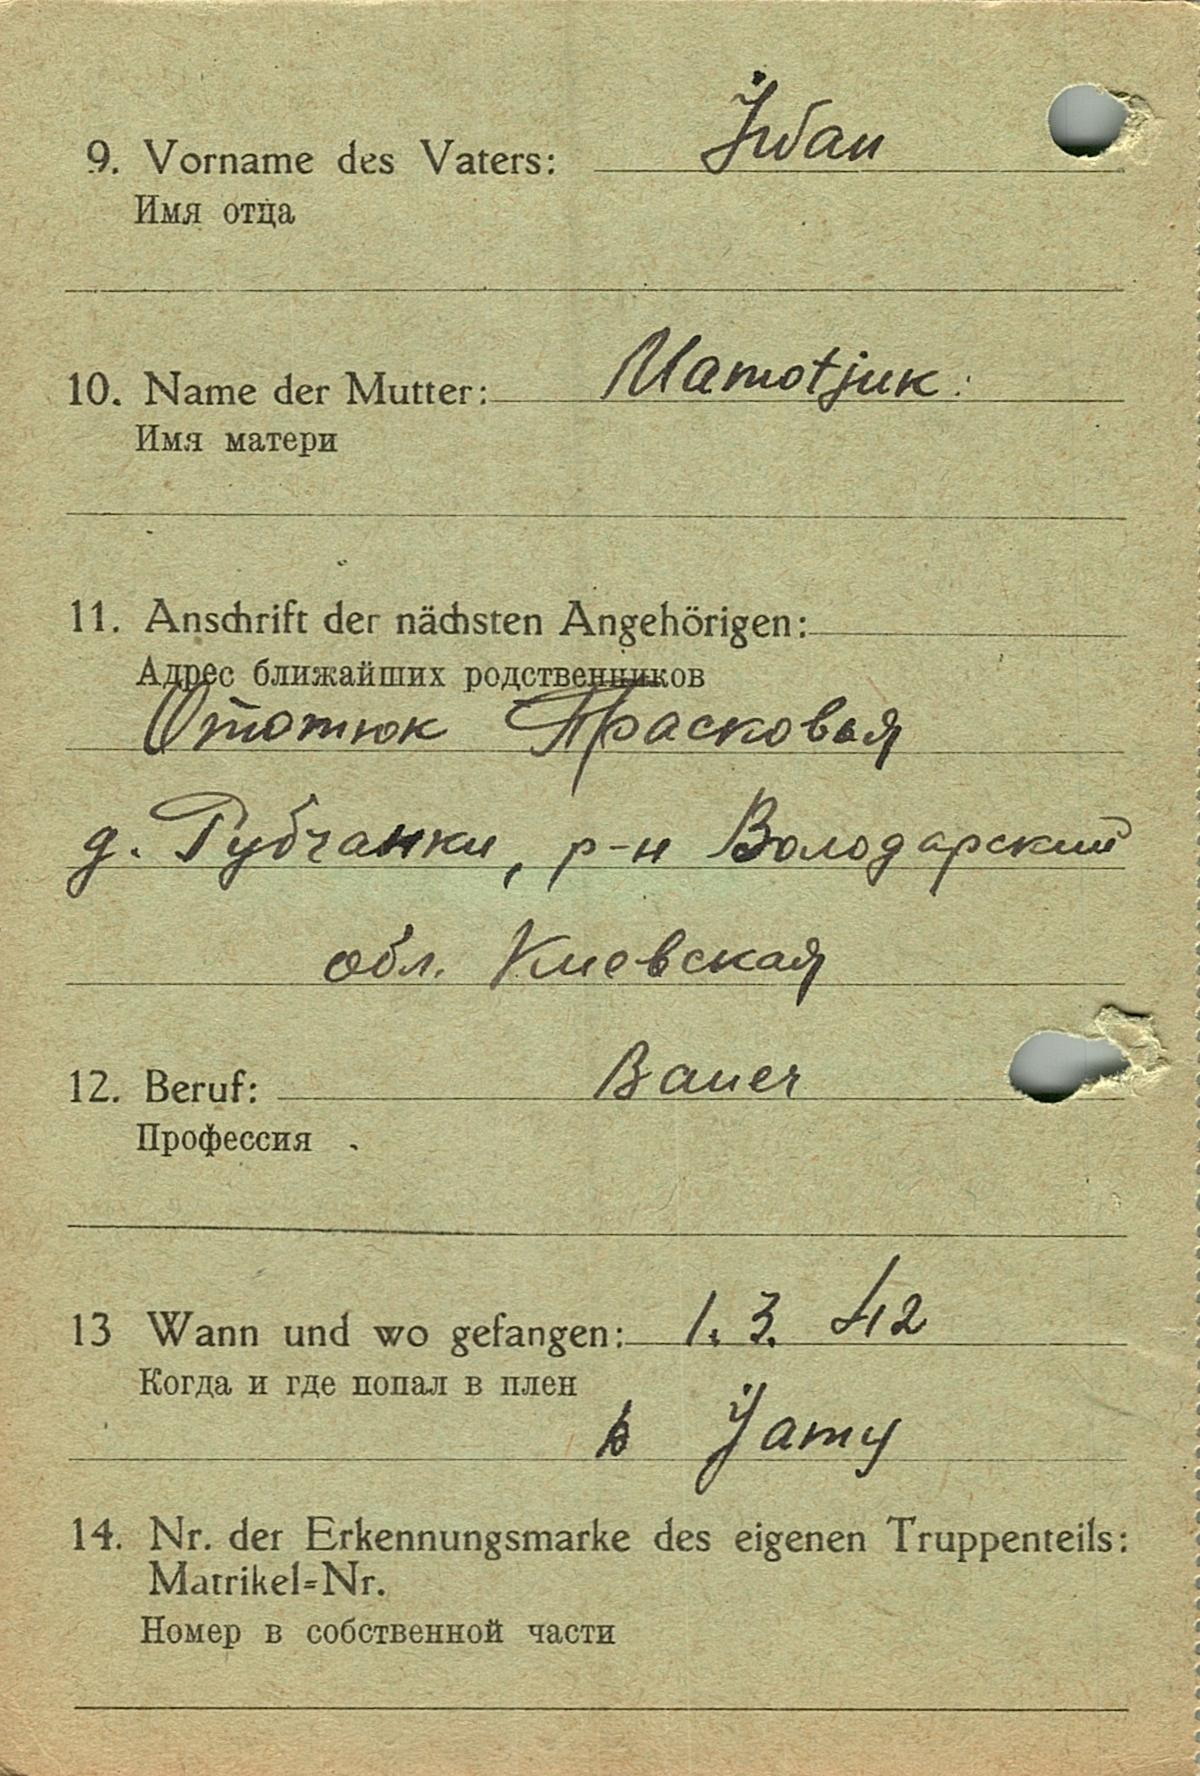 9. Vorname des Vaters: Iван
Имя отца
10. Name der Mutter: Mamotjuk.
Имя матери
11. Anschrift der nächsten Angehörigen:
Адрес ближайших родственников
Ототюк Прасковья
д. Рубчанки, р-н Володарский
обл. Киевская
12. Beruf: Bauer
Профессия
13 Wann und wo gefangen: 1. 3. 42
Когда и где попал в плен
14. Nr. der Erkennungsmarke des eigenen Truppenteils:
Matrikel=Nr.
Номер в собственной части